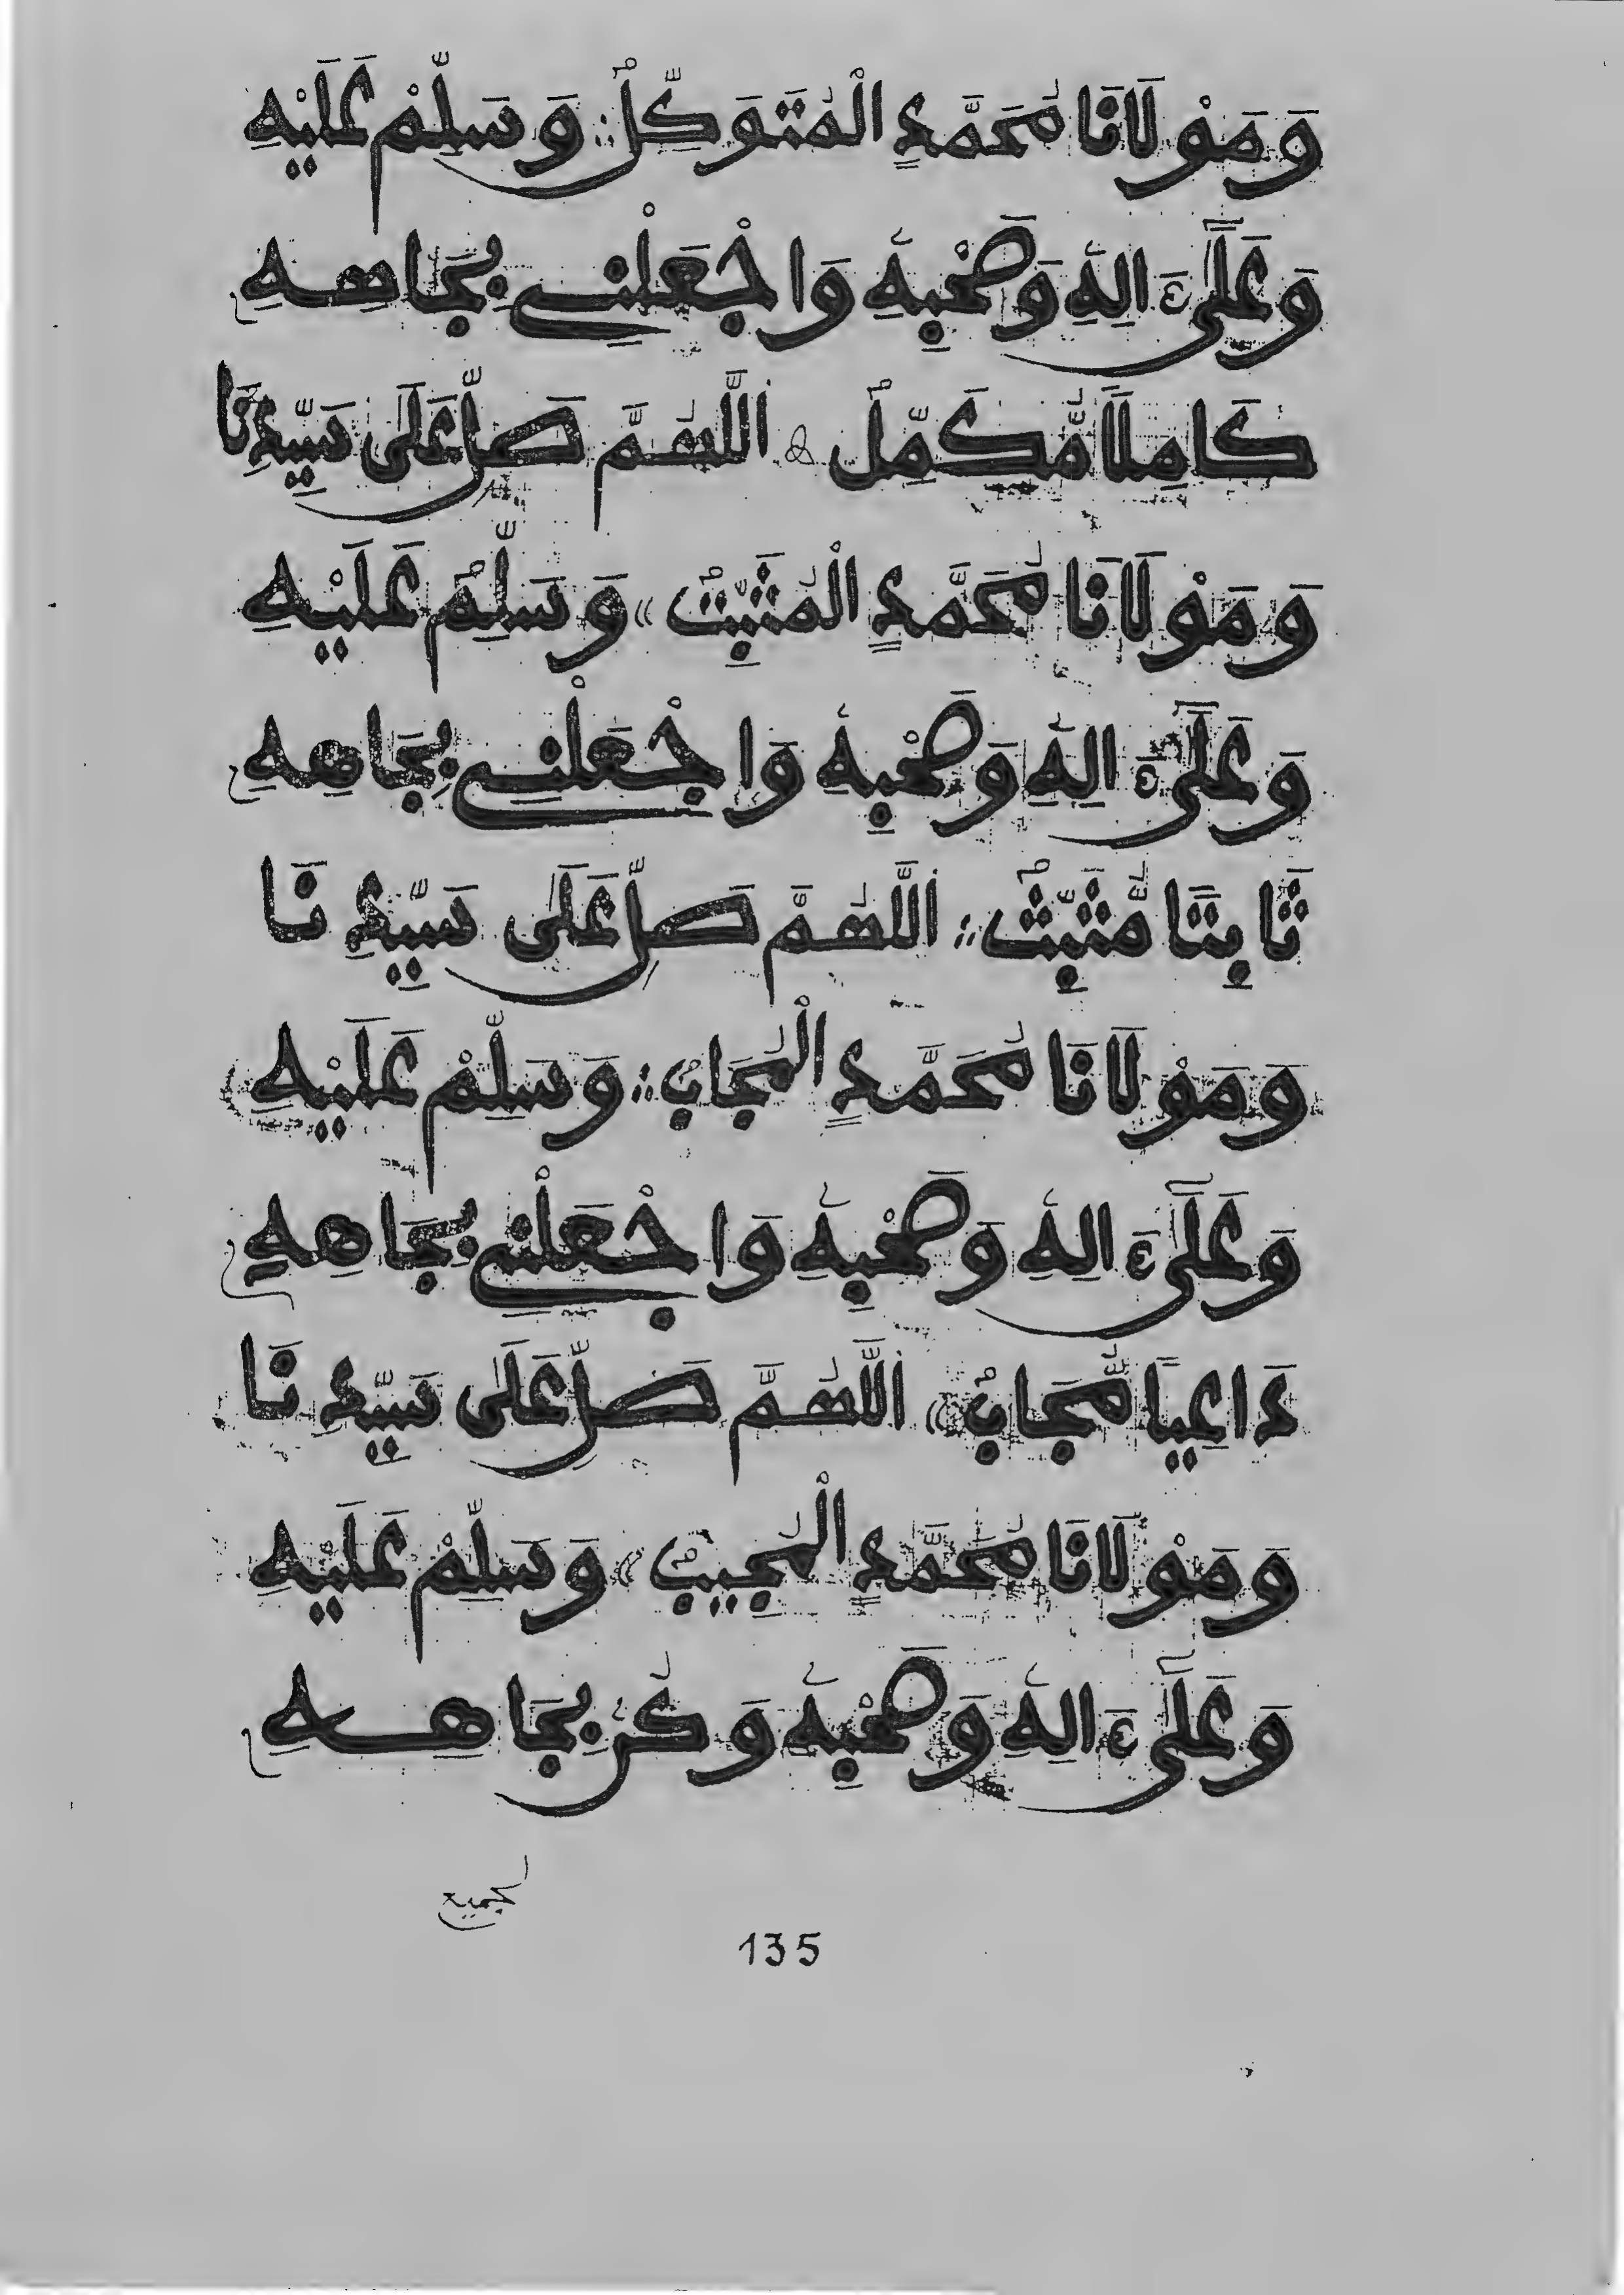 وَمَوْلَانَا مُحَمَّدٍ الْمُتَوَكِّلْ ؛ وَسَلِّمْ عَلَيْهِ
وَعَلَىٰٓ ءَالِهِ وَصَحْبِهِ وَاجْعَلْنِے بِجَاهِهِ
كَامِلًا مُّكَمِّلْ ۞ اللَّهُمَّ صَلِّ عَلَى سَيِّدِنَا
وَمَوْلَانَا مُحَمَّدٍ الْمُثَبِّتْ » وَسَلِّمْ عَلَيْهِ
وَعَلَىٰٓ ءَالِهِ وَصَحْبِهِ وَاجْعَلْنِے بِجَاهِهِ
ثَابِتًا مُّثَبِّتْ ؛ اللَّهُمَّ صَلِّ عَلَى سَيِّدِنَا
وَمَوْلَانَا مُحَمَّدٍ الْمُجَابْ ؛ وَسَلِّمْ عَلَيْهِ
وَعَلَىٰٓ ءَالِهِ وَصَحْبِهِ وَاجْعَلْنِے بِجَاهِهِ
دَاعِيًا مُّجَابْ » اللَّهُمَّ صَلِّ عَلَى سَيِّدِنَا
وَمَوْلَانَا مُحَمَّدٍ الْمُجِيبْ » وَسَلِّمْ عَلَيْهِ
وَعَلَىٰٓ ءَالِهِ وَصَحْبِهِ وَكُن بِجَاهِهِ
لجميع
135